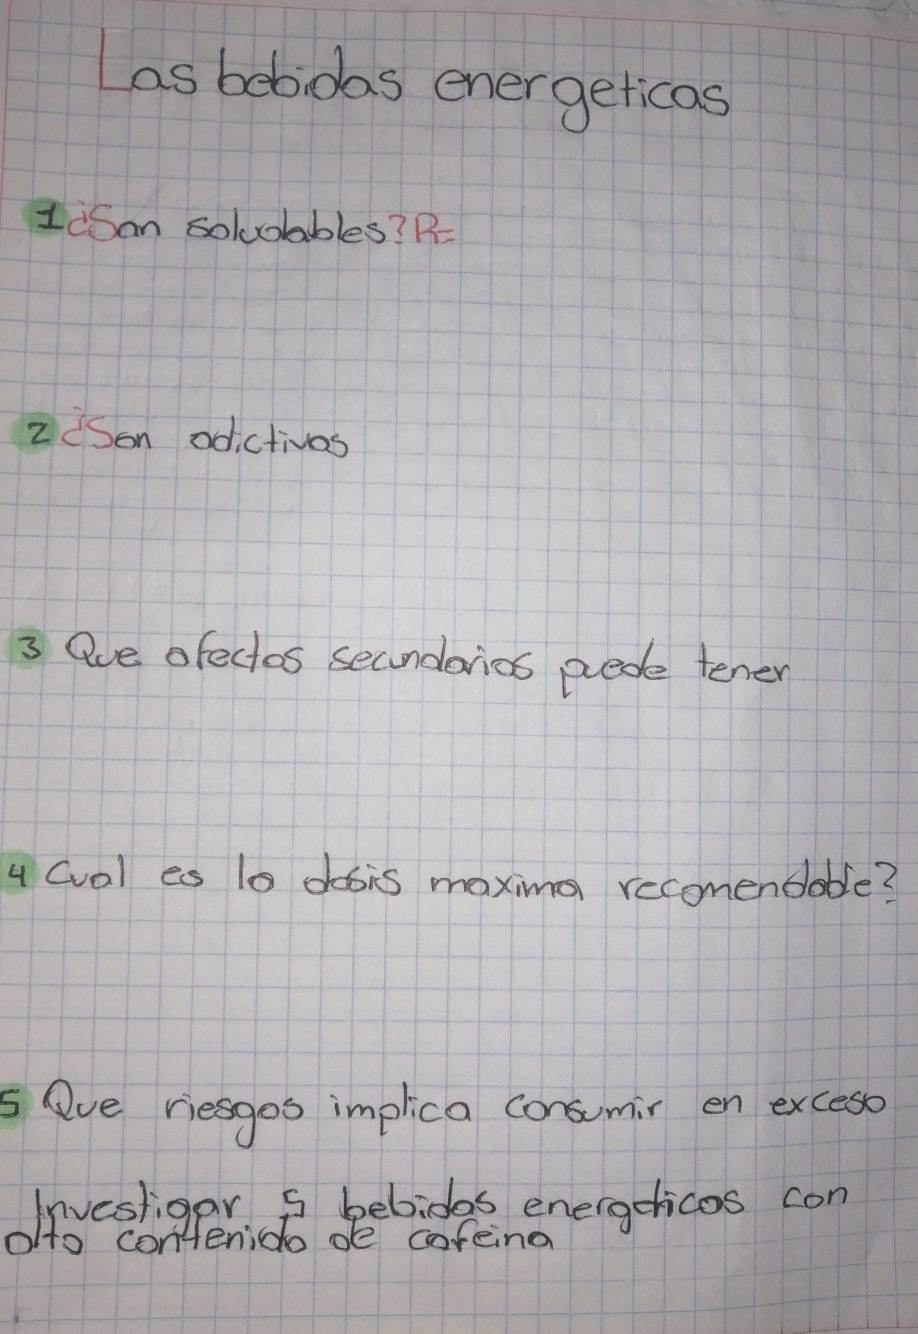 Las bebidas energeticas
1 ¿Son saludables? R=
2 ¿Son adictivas
3 Que efectos secundarios puede tener
4 Cual es la dosis maxima recomendable?
5 Que riesgos implica consumir en exceso
Investigar 5 bebidas energeticas con
alto contenido de cafeina